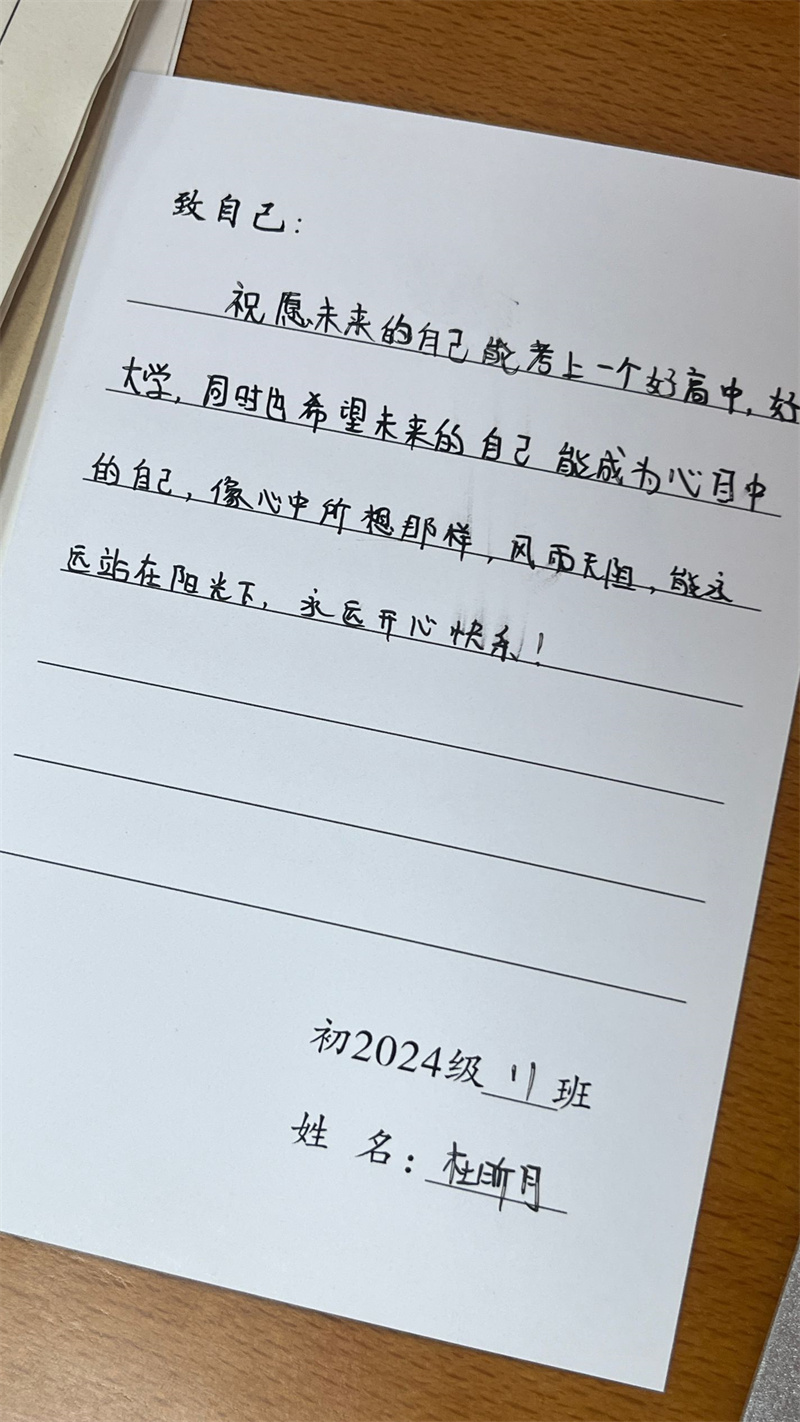 致自己：
祝愿未来的自己能考上一个好高中，好
大学，同时也希望未来的自己能成为心目中
的自己，像心中所想那样，风雨无阻，能永
远站在阳光下，永远开心快乐！
初2024级 11 班
姓 名：杜昕月